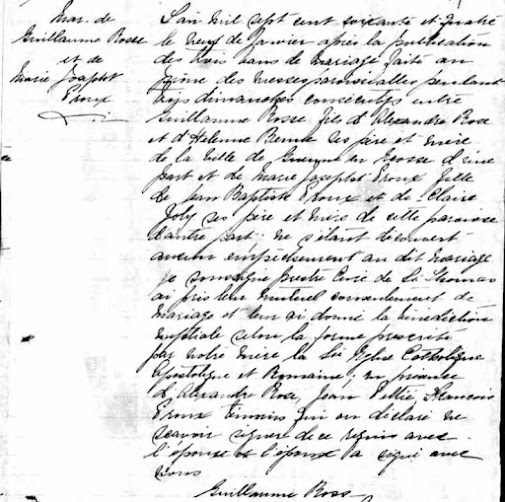 Mar. de
Guillaume Rosse
et de
Marie Josephte
Proux
L'an mil sept cent soixante et quatre
le neuf de Janvier après la publication
des trois bans de mariage faite au
prône des messes paroissialles pendant
trois dimanches consécutifs entre
Guillaume Rosse, fils d'Alexandre Rose
et d'Helenne ses père et mère
de la ville de en Ecosse d'une
part et de Marie Josephte Proux fille
de Jean Baptiste Proux et de Claire
Joly ses père et mère de cette paroisse
d'autre part; ne s'étant découvert
aucun empêchement au dit mariage
je soussigné prestre Curé de St. Thomas
ai pris leur mutuel consentement de
mariage et leur ai donné la bénédiction
nuptiale selon la forme prescrite
par notre mère la Ste Eglise Catholique
Apostolique et Romaine; en présence
d'Alexandre Rose, Jean, François
Proux témoins qui ont déclaré ne
scavoir signer de ce requis avec
l'épouse et l'époux a signé avec
nous
Guillaume Ross